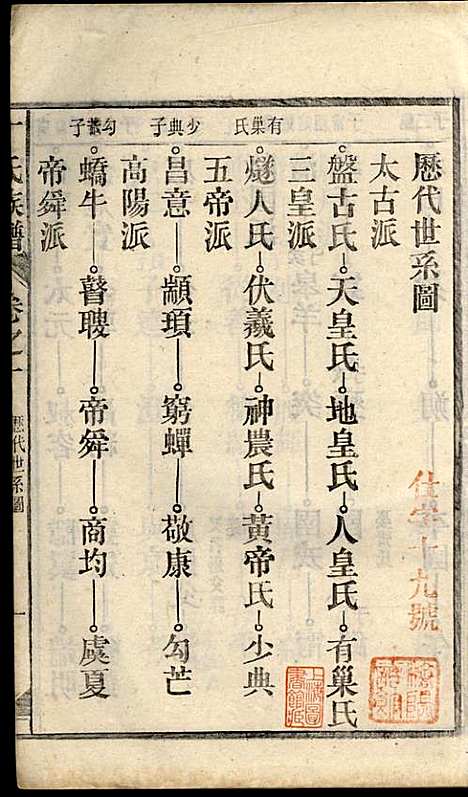 歷代世系圖
太古派
盤古氏 天皇氏 地皇氏 人皇氏 有巢氏
三皇派
有巢氏
燧人氏 伏羲氏 神農氏 黃帝氏 少典
五帝派
少典子
昌意 顓頊 窮蟬 敬康 勾芒
高陽派
勾芒子
蟜牛 瞽瞍 帝舜 商均 虞夏
帝舜派
氏族譜
卷之一
歷代世系圖
一
仕字十九號
上海圖書館藏